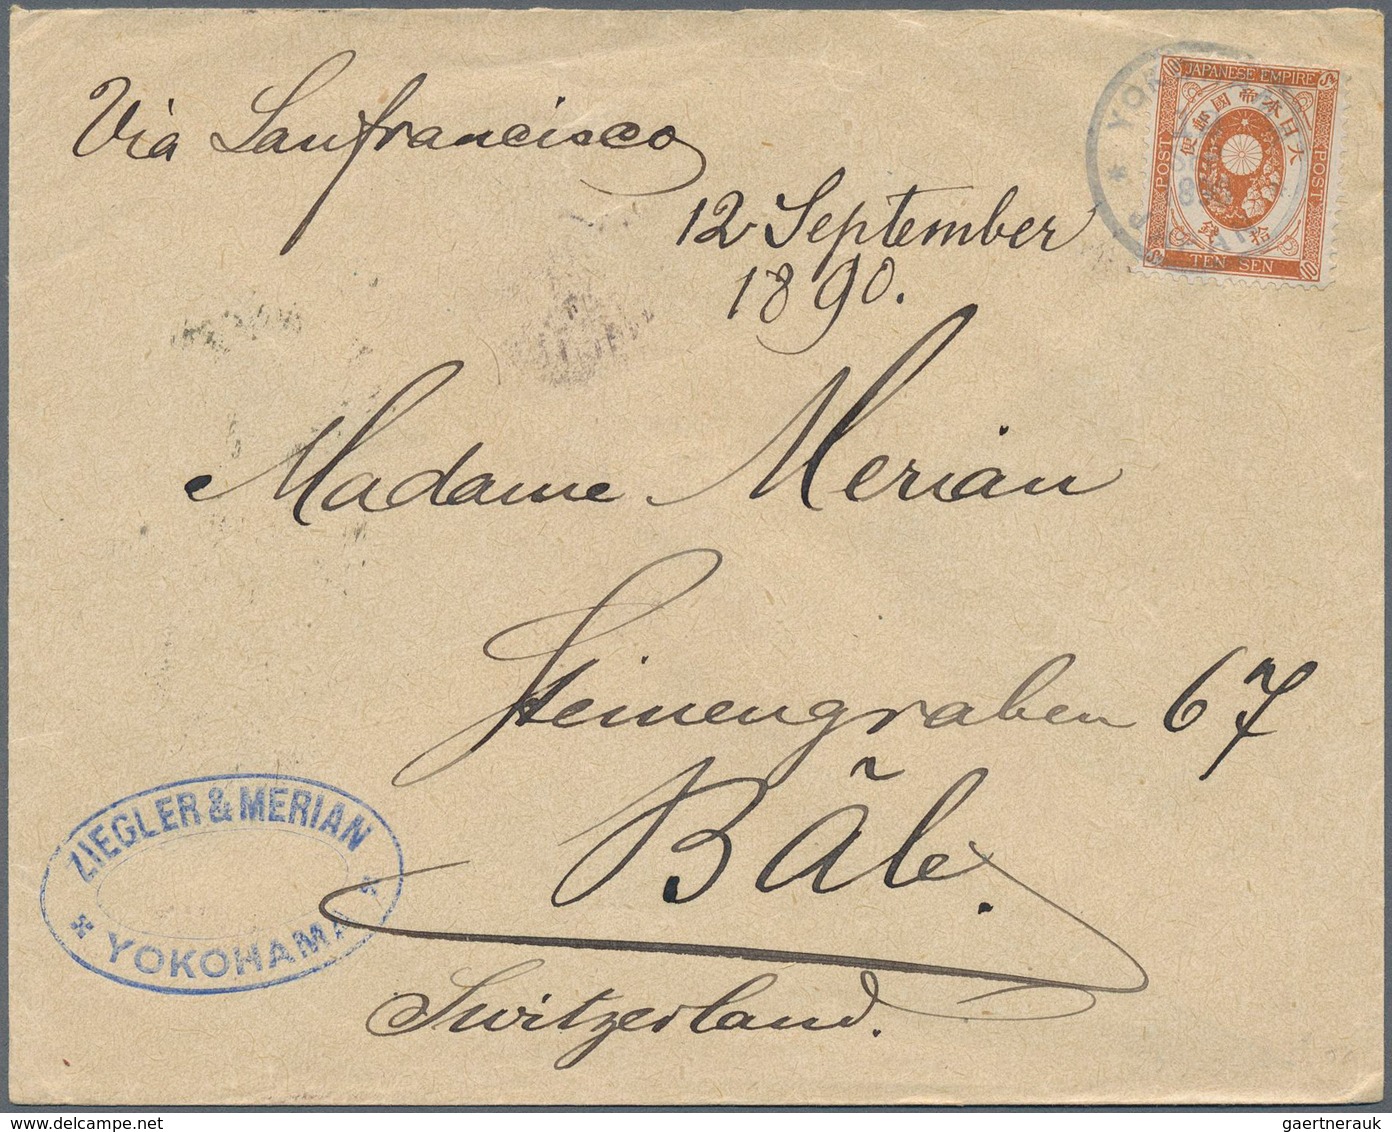 Via Sanfrancisco
12 September
1890.
Madame Merian
Steinengraben 67
Bâle.
Switzerland.
ZIEGLER & MERIAN
YOKOHAMA
JAPANESE EMPIRE
大日本帝國郵便
POST
POST
10
10
拾錢
TEN SEN
YOK
gaertnerauk